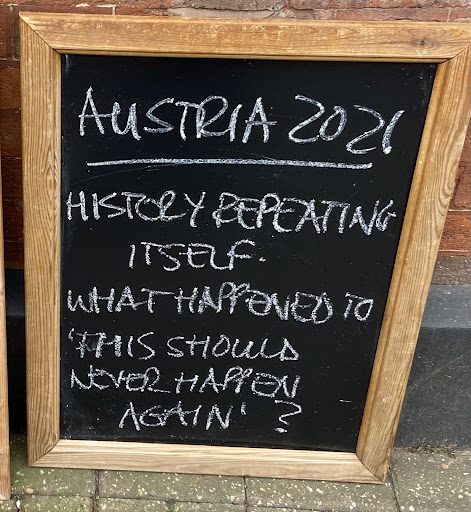 AUSTRIA 2021
HISTORY REPEATING
ITSELF.
WHAT HAPPENED TO
'THIS SHOULD
NEVER HAPPEN
AGAIN' ?